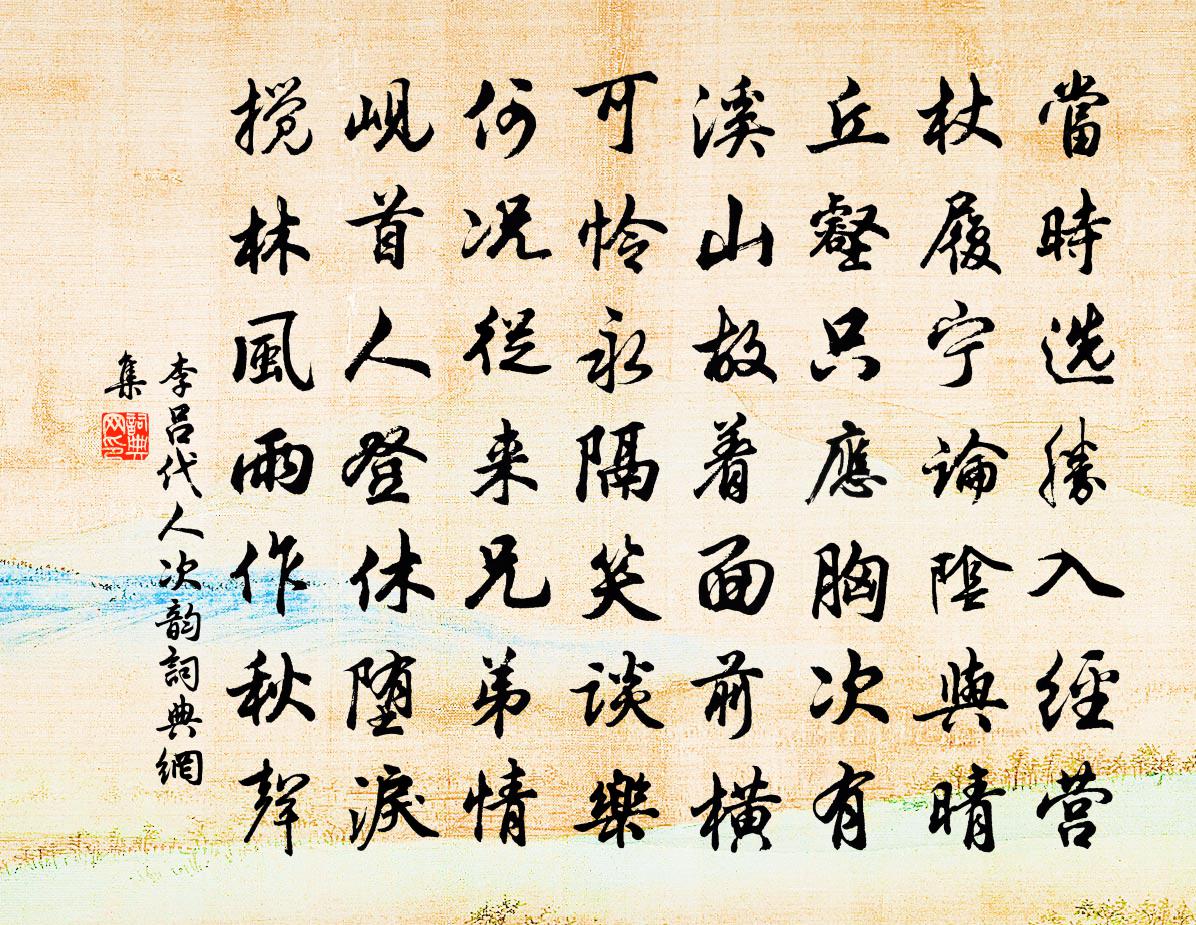 當時选勝入經营
杖履宁論陰與晴
丘壑只應胸次有
溪山故着面前橫
可怜永隔笑談樂
何况從来兄弟情
岘首人登休堕淚
搅林風雨作秋聲
李吕代人次韵詞典網
集
詞典
网印